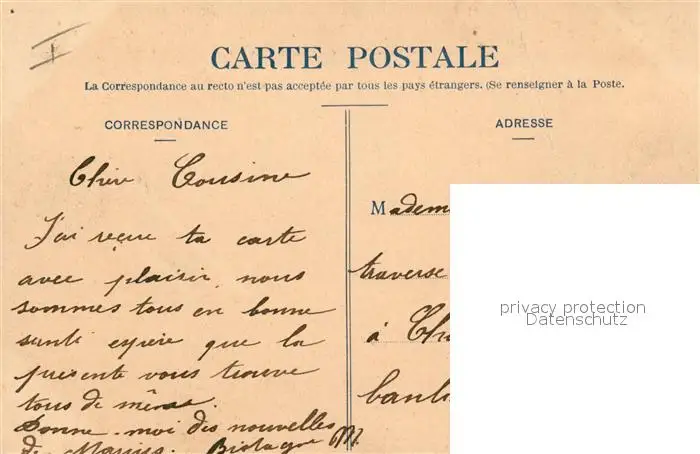 CARTE POSTALE
La Correspondance au recto n'est pas acceptée par tous les pays étrangers. (Se renseigner à la Poste.
CORRESPONDANCE
ADRESSE
Chère Cousine
J'ai reçue ta carte
avec plaisir, nous
sommes tous en bonne
santé espère que la
présente vous trouve
tous de même.
Donne-moi des nouvelles
de Marius.
Madem
traverse
à Ch
banl
privacy protection
Datenschutz